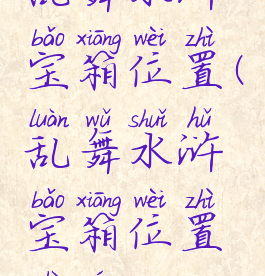 乱舞水浒
bǎo xiāng wèi zhì
宝箱位置(
luàn wǔ shuǐ hǔ
乱舞水浒
bǎo xiāng wèi zhì
宝箱位置